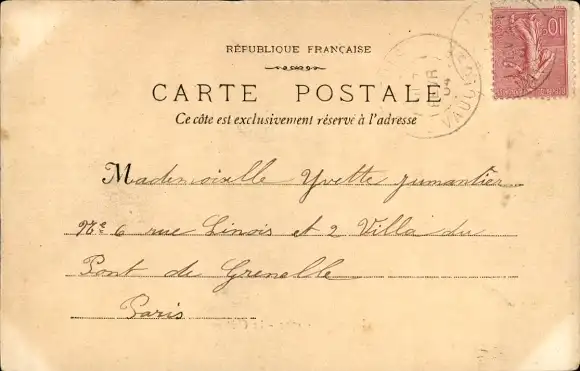 RÉPUBLIQUE FRANÇAISE
CARTE POSTALE
Ce côté est exclusivement réservé à l'adresse
Mademoiselle Yvette Jumantier
Nº 6 rue Linois et 2 Villa du
Pont de Grenelle
Paris
10
VAUCLUSE